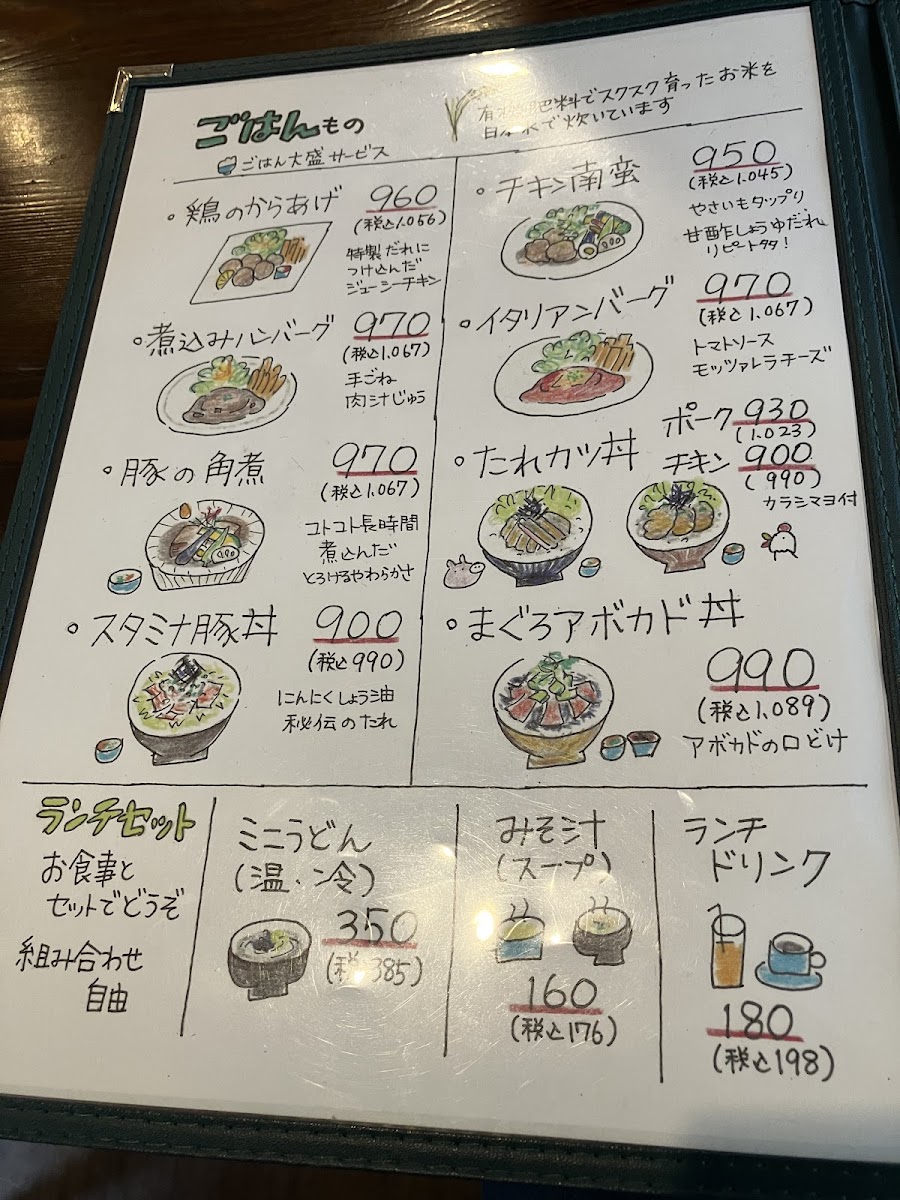 ごはんもの
ごはん大盛サービス
肥料でスクスク育ったお米を
で炊いています
・鶏のからあげ
960
(税込1.056)
特製だれに
つけ込んだ
ジューシーチキン
・煮込みハンバーグ
970
(税込1.067)
手ごね
肉汁じゅう
・豚の角煮
970
(税込1.067)
コトコト長時間
煮込んだ
とろけるやわらかさ
・スタミナ豚丼
900
(税込990)
にんにくしょう油
秘伝のたれ
・チキン南蛮
950
(税込1.045)
やさいもタップリ
甘酢しょうゆだれ
リピート多!
・イタリアンバーグ
970
(税込1.067)
トマトソース
モッツァレラチーズ
・たれカツ丼
ポーク930
(1.023)
チキン900
(990)
カラシマヨ付
・まぐろアボカド丼
990
(税込1.089)
アボカドの口どけ
ランチセット
お食事と
セットでどうぞ
組み合わせ
自由
ミニうどん
(温・冷)
350
(税 385)
みそ汁
(スープ)
160
(税込176)
ランチ
ドリンク
180
(税込198)